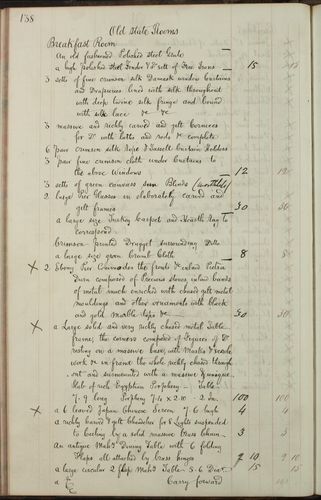 138
Old State Rooms
Breakfast Room
An old fashioned Polished Steel Grate
a high Polished Steel Fender & sett of Fire Irons 15
3 setts of fine crimson silk Damask window Curtains
and Draperies lined with silk throughout
with deep twine silk fringe and bound
with silk lace &c &c
3 massive and richly carved and gilt Cornices
for Do with laths and rods &c complete
6 pair crimson silk rope & Tassell Curtain Holders
3 pair fine crimson cloth under Curtains to
the above Windows 12 12
3 setts of green canvass Sun Blinds (worthless)
2 large Pier Glasses in elaborately carved and
gilt frames 30 30
a large size Turkey Carpet and Hearth Rug to
correspond
Crimson printed Drugget surrounding Ditto
a large size green Crumb Cloth 8 8
X 2 Ebony Pier Commodes the fronts of inlaid Pietra
Dura composed of Precious stones inlaid bands
of metal much enriched with chased gilt metal
mouldings and other ornaments with black
and gold Marble tops &c 30 30
X a Large solid and very richly chased metal Table
frame, the corners composed of Figures of
resting on a massive base, with Masks & scrole
work &c in front the whole richly chased through
out and surmounted with a massive & unique
slab of rich Egyptian Porphery Table
7.9 long Porphery 7.4 x 2.10 . 2 in. 100 100
X a 6 leaved Japan Chinese Screen 7.6 high 4 4
a richly carved & gilt Chandelier for 8 Lights suspended
to Ceiling by a solid massive Brass Chain 3 3
An antique Mahy Dining Table with 6 folding
Flaps all attached by brass hinges 7 10 9 10
a large circular 2 flap Mahy Table 5.6 Diar 15 15
Carry forward